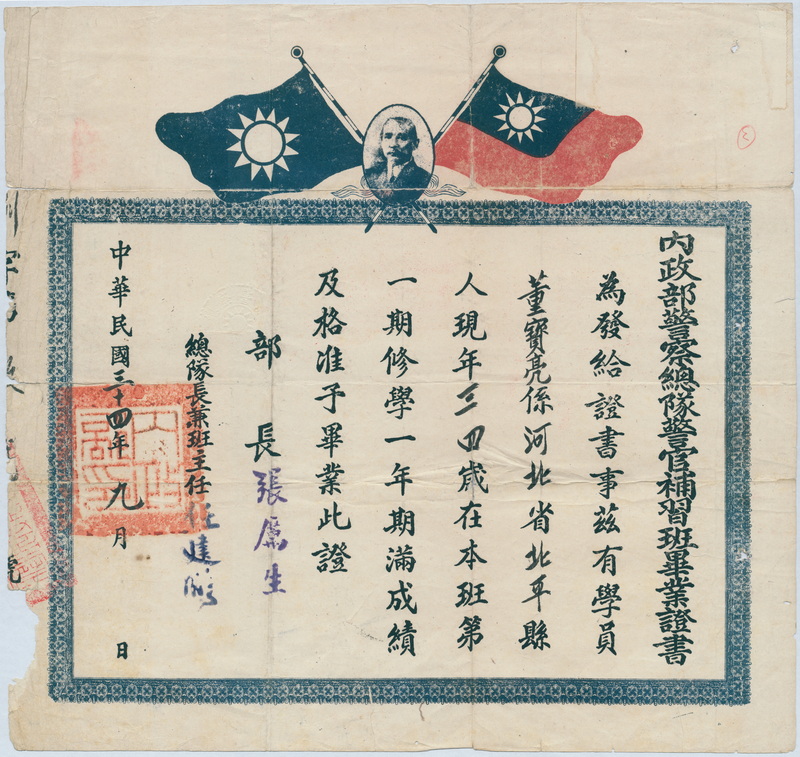 內政部警察總隊警官補習班畢業證書
為發給證書事茲有學員
董寶亮係河北省北平縣
人現年三四歲在本班第
一期修學一年期滿成績
及格准予畢業此證
部長張厲生
總隊長兼班主任任建鵬
中華民國三十四年九月 日
字第 號